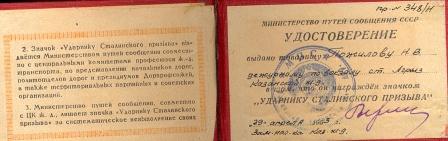 2. Значок «Ударнику Сталинского призыва» вы-
даётся Министерством путей сообщения совмест-
но с центральными комитетами профсоюза ж.-д.
транспорта, по представлению начальников дорог,
политотделов дорог и президиумов Дорпрофсожей,
а также территориальных партийных и советских
организаций.
3. Министерство путей сообщения, совместно
с ЦК ж. д., лишает значка «Ударнику Сталинского
призыва» за систематическое невыполнение своих
пр. № 348/Н
МИНИСТЕРСТВО ПУТЕЙ СООБЩЕНИЯ СССР
УДОСТОВЕРЕНИЕ
выдано товарищу Пожилову Н. В.
дежурному по вокзалу ст.
Казанской ж.д.
в том, что он награждён значком
"УДАРНИКУ СТАЛИНСКОГО ПРИЗЫВА"
"29" апреля
Зам. нач-ка Каз. ж.д.